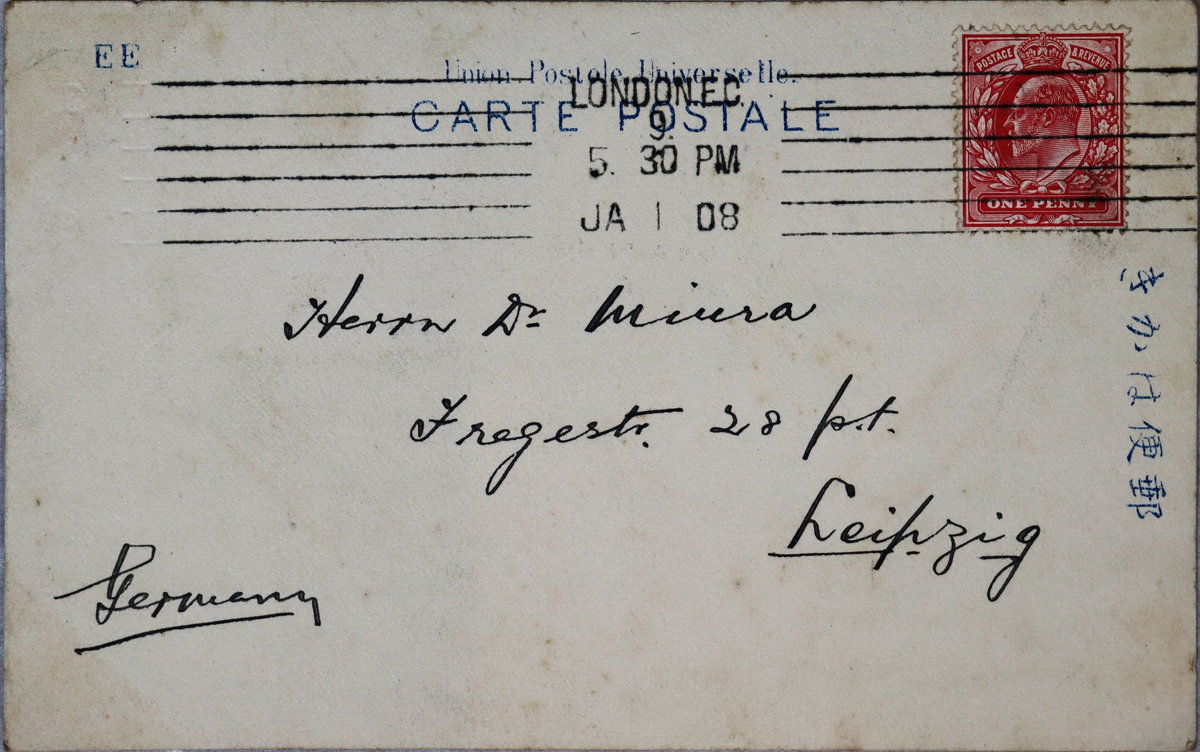 EE
Union Postale Universelle.
CARTE POSTALE
LONDON.E.C.
9
5. 30 PM
JA 1 08
POSTAGE & REVENUE
ONE PENNY
きかは便郵
Herrn Dr Miura
Fregestr. 28 pt.
Leipzig
Germany